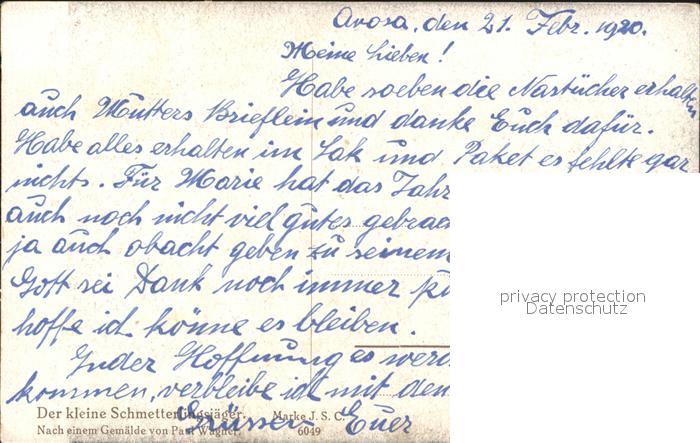 Arosa, den 21. Febr. 1920.
Meine Lieben!
Habe soeben die Nastücher erhalten
auch Mutters Brieflein und danke Euch dafür.
Habe alles erhalten im Sak und Paket es fehlte gar
nichts. Für Marie hat das Jahr
auch noch nicht viel gutes gebrac
ja auch obacht geben zu seinem
Gott sei Dank noch immer
hoffe ich könne es bleiben.
In der Hoffnung es werd
kommen, verbleibe ich mit den
Grüssen Euer
privacy protection
Datenschutz
Der kleine Schmetterlingsjäger. Marke J. S. C.
Nach einem Gemälde von Paul Wagner. 6049